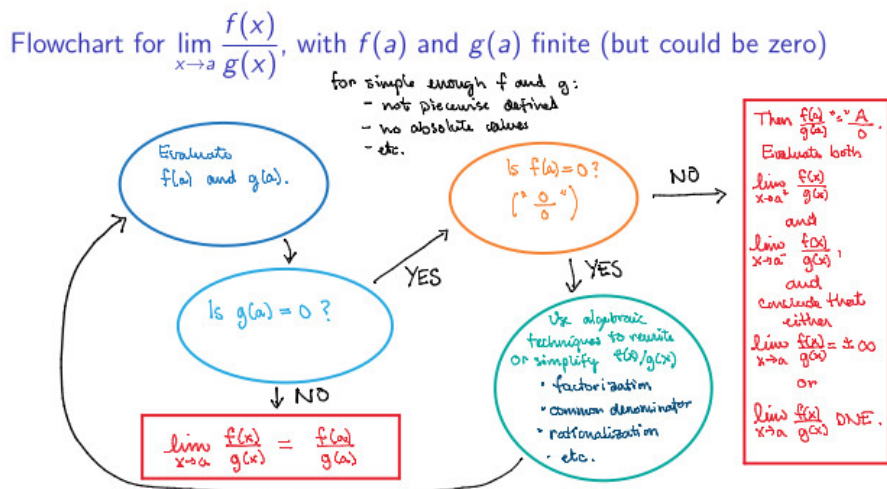 Flowchart for lim x→a f(x)/g(x), with f(a) and g(a) finite (but could be zero)
for simple enough f and g:
- not piecewise defined
- no absolute values
- etc.
Evaluate
f(a) and g(a).
Is g(a) = 0 ?
YES
NO
lim x→a f(x)/g(x) = f(a)/g(a)
Is f(a) = 0 ?
(" 0/0 ")
NO
YES
Use algebraic
techniques to rewrite
or simplify f(x)/g(x)
• factorization
• common denominator
• rationalization
• etc.
Then f(a)/g(a) "=" A/0.
Evaluate both
lim x→a⁺ f(x)/g(x)
and
lim x→a⁻ f(x)/g(x),
and
conclude that
either
lim x→a f(x)/g(x) = ±∞
or
lim x→a f(x)/g(x) DNE.